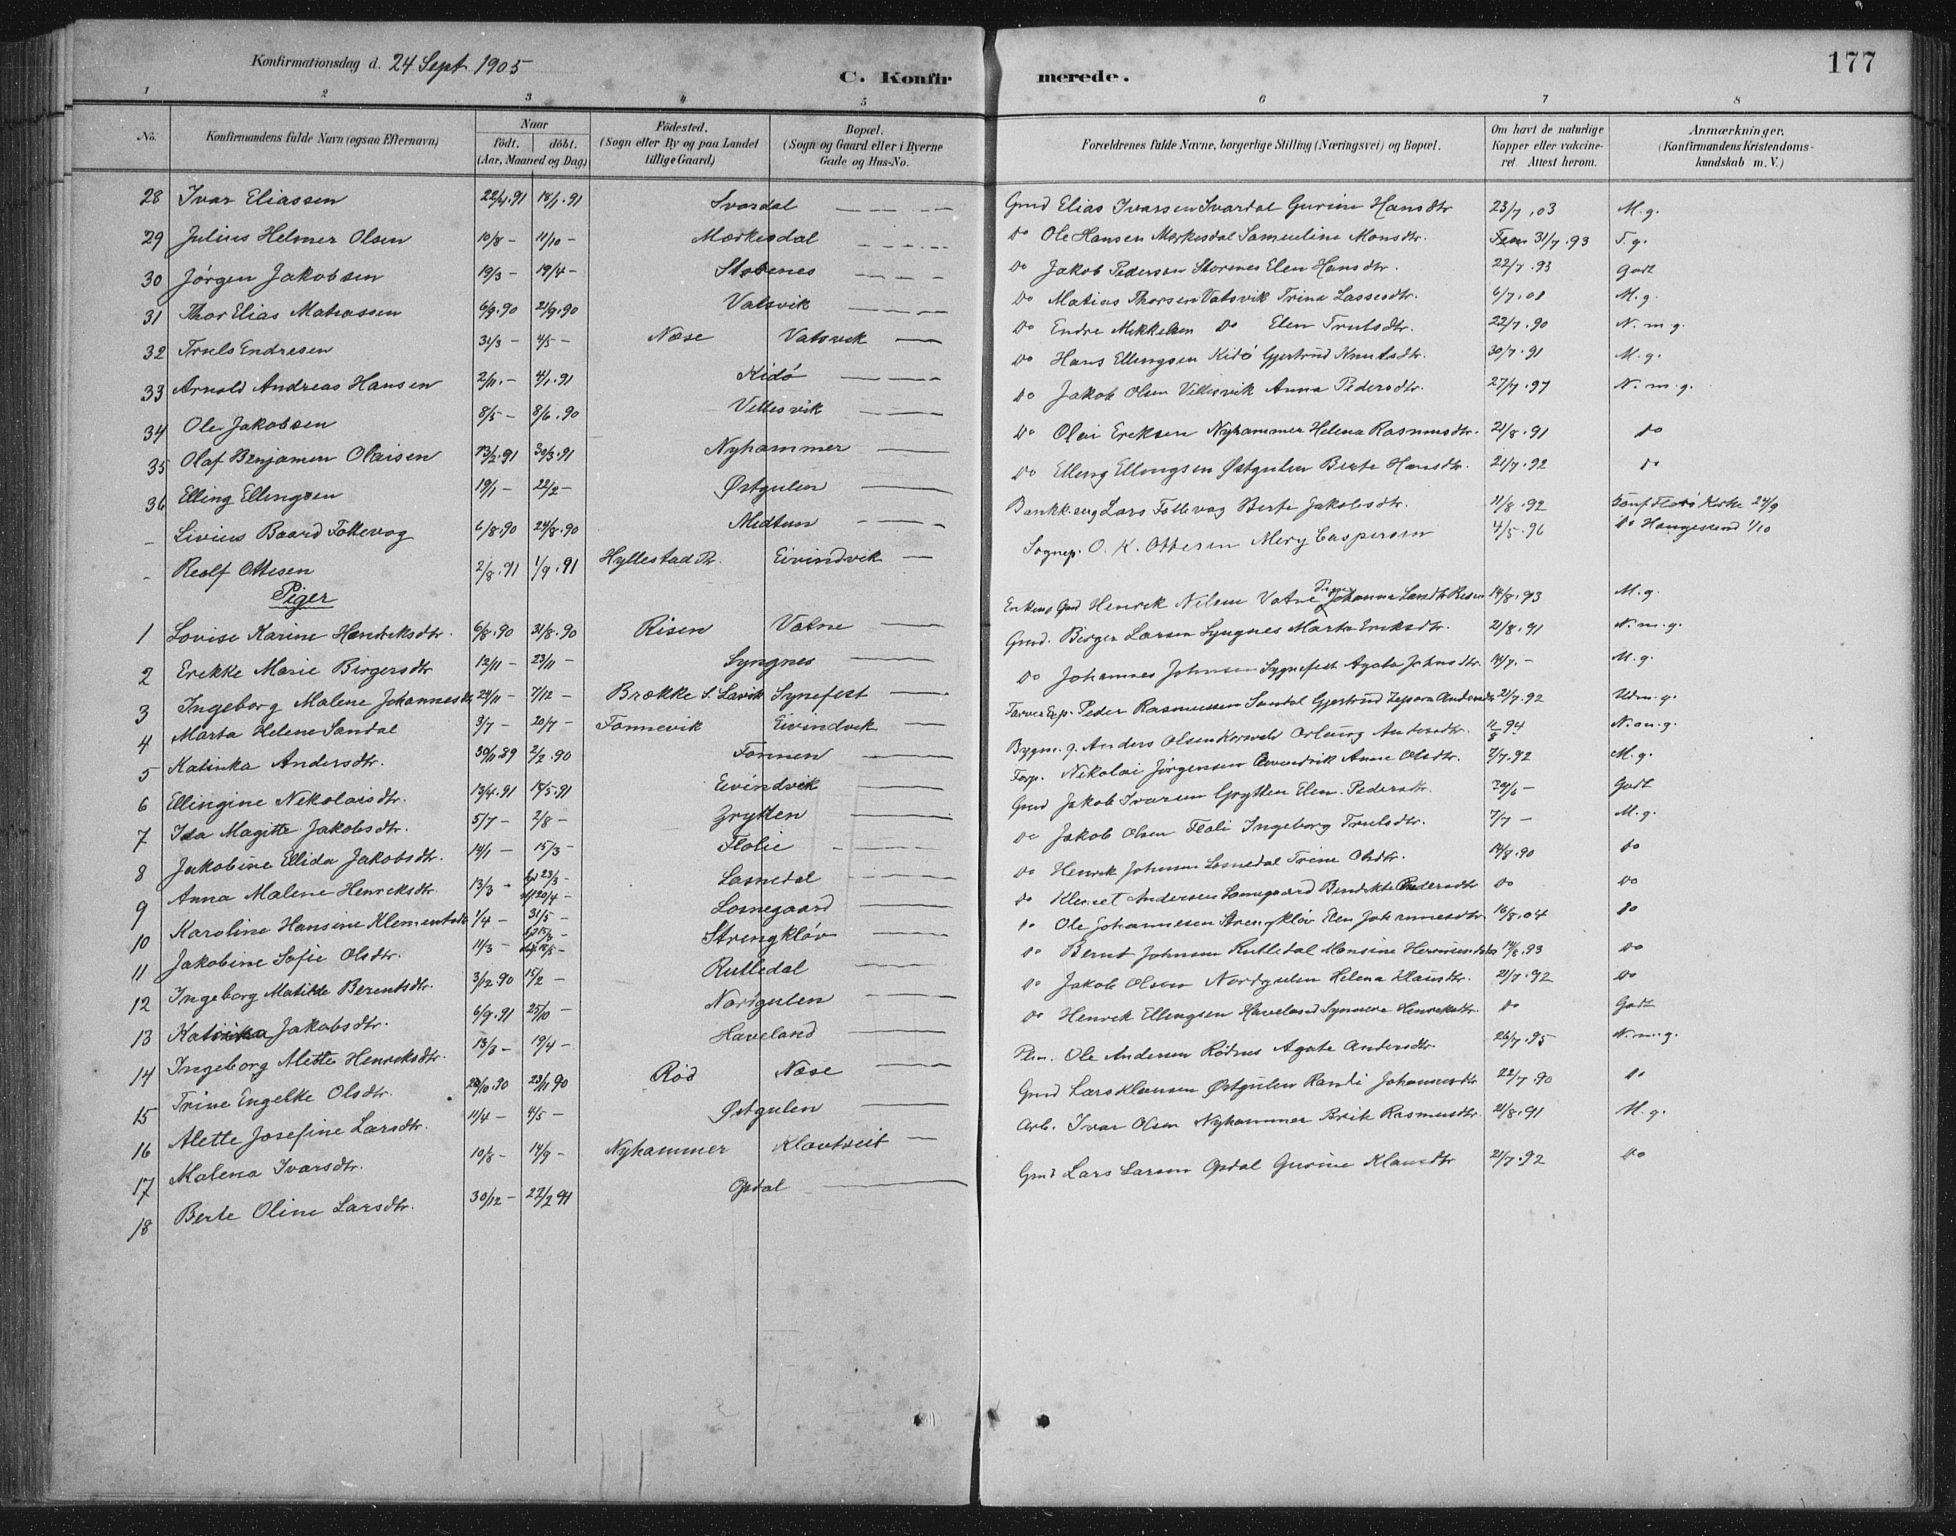 Konfirmationsdag d. 24 Sept. 1905
C. Konfirmerede.
177
1 2 3 4 5 6 7 8
No. Konfirmandens fulde Navn (ogsaa Efternavn) Naar født. døbt. (Aar, Maaned og Dag) Fødested. (Sogn eller By og paa Landet tillige Gaard) Bopæl. (Sogn og Gaard eller i Byerne Gade og Hus-No. Forældrenes fulde Navne, borgerlige Stilling (Næringsvei) og Bopæl. Om havt de naturlige Kopper eller vakcineret. Attest herom. Anmærkninger. (Konfirmandens Kristendomskundskab m. V.)
28 Ivar Eliassen 22/4.91 18/1.91 Svardal Gmd Elias Ivarsen Svardal Gurine Hansdtr 23/7.03 M.g.
29 Julius Helmer Olsen 10/8 - 11/10 - Mærkesdal Do Ole Hansen Mærkesdal Samueline Monsdtr. 31/7.93 T.g.
30 Jørgen Jakobsen 19/3 - 19/4 - Storenes Do Jakob Pedersen Storenes Elen Hansdtr. 22/7.93 Godt
31 Thor Elias Matiassen 6/9.90 21/9.90 Vatsvik Do Matias Thorsen Vatsvik Trina Lassesdtr. 6/7.01 M.g.
32 Truls Endresen 31/3 - 4/5 - Næse Vatsvik Do Endre Mikkelsen Do Elen Trulsdtr. 22/7.90 N.m.g.
33 Arnold Andreas Hansen 2/11.- 4/1.91 Kidø Do Hans Ellingsen Kidø Gjertrud Knutsdtr. 30/7.91 M.g.
34 Ole Jakobsen 8/5 - 8/6.90 Villesvik Do Jakob Olsen Villesvik Anna Pedersdtr. 27/7.97 N.m.g.
35 Olaf Benjamin Olaisen 13/2.91 30/3.91 Nyhammer Do Olai Eriksen Nyhammer Helena Rasmusdtr. 21/8.91 Do
36 Elling Ellingsen 19/1 - 22/2 - Østgulen Do Elling Ellingsen Østgulen Berte Hansdtr. 21/7.92 Do
- Livius Baard Follevag 6/8.90 24/8.90 Midtun Lars Follevag Berte Jakobsdtr. 11/8.92 Konf Florø Kirke 24/9
- Reolf Ottesen 2/8.91 1/9.91 Hyllestad Pr. Eivindvik Sognep. O. K. Ottesen Mery Caspersen 4/5.96 Do Haugesund 1/10
Piger
1 Lovise Karine Henriksdtr. 6/8.90 31/8.90 Risen Vatne Enkem Gmd Henrik Nilsen Vatne Johanna Larsdtr Risen 14/8.93 M.g.
2 Erekke Marie Birgersdtr 12/11 - 23/11 - Syngnes Gmd. Birger Larsen Syngnes Marta Eriksdtr. 21/8.91 N.m.g.
3 Ingeborg Malene Johannesdtr 24/11 - 7/12 - Brække S. Lavik Synefest Do Johannes Johnsen Sygnefest Agata Johnsdtr. 14/7.- M.g.
4 Marta Helene Sandal 3/7 - 20/7 - Fonnevik Eivindvik Peder Rasmussen Sandal Gjertrud Andersdtr 21/7.92 Udm.g.
5 Katinka Andersdtr. 30/11.89 2/2.90 Fonnen Anders Olsen Andersdtr. 11/8 94 N.m.g.
6 Ellingine Nikolaisdtr. 13/4.91 14/5.91 Eivindvik Forp. Nikolai Jørgensen Eivindvik Anne Olsdtr. 7/7.92 M.g.
7 Ida Magitte Jakobsdtr. 5/7 - 2/8 - Grytten Gmd Jakob Ivarsen Grytten Elen Pedersdtr. 20/6 - Godt
8 Jakobine Ellida Jakobsdtr. 14/1 - 15/3 - Flolie Do Jakob Olsen Floli Ingeborg Trulsdtr. 7/7 - M.g.
9 Anna Malene Henriksdtr. 13/3 - 23/3 - 20/4 - Losnedal Do Henrik Johnsen Losnedal Trine Olsdtr. 14/8.90 Do
10 Karoline Hansine Klementsdtr 1/4 - 31/5 - Losnegaard Do Klemet Andersen Losnegaard Bendikte Pedersdtr Do Do
11 Jakobine Sofie Olsdtr. 11/3 - 15/3 - 18/5 - Strengkløv Do Ole Johannesen Strengkløv Elen Johannesdtr 16/8.04 Do
12 Ingeborg Matilde Berentsdtr. 3/12.90 15/2 - Rutledal Do Bernt Johnsen Rutledal Monsine 14/8.93 Do
13 Katinka Jakobsdtr. 6/9.91 25/10 - Nordgulen Do Jakob Olsen Nordgulen Helena Klausdtr. 21/7.92 Do
14 Ingeborg Mette Henriksdtr. 13/3 - 19/4 - Haveland Do Henrik Ellingsen Haveland Synneva Henriksdtr. Do Godt
15 Trine Engelke Olsdtr. 28/10.90 23/11.90 Rød Næse Ole Andersen Rødnes Agate Andersdtr. 26/7.95 N.m.g.
16 Alette Josefine Larsdtr. 11/4 - 4/5 - Østgulen Gmd Lars Klausen Østgulen Randi Johannesdtr 22/7.90 Do
17 Malena Ivarsdtr. 10/8 - 14/9 - Nyhammer Klavtveit Arb. Ivar Olsen Nyhammer Brite Rasmusdtr. 21/8.91 M.g.
18 Berte Oline Larsdtr. 30/12 - 22/2 91 Opdal Gmd Lars Larsen Opdal Gurine Klausdtr 21/7.92 Do